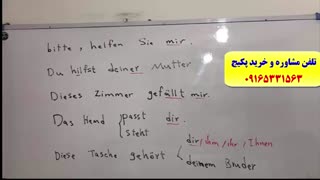 bitte, helfen Sie mir.
Du hilfst deiner Mutter
Dieses Zimmer gefällt mir.
Das Hemd { passt steht dir.
Diese Tasche gehört { dir/ihm/ihr/Ihnen
deinem Bruder
تلفن مشاوره و خرید پکیج
۰۹۱۶۵۳۳۱۵۶۳